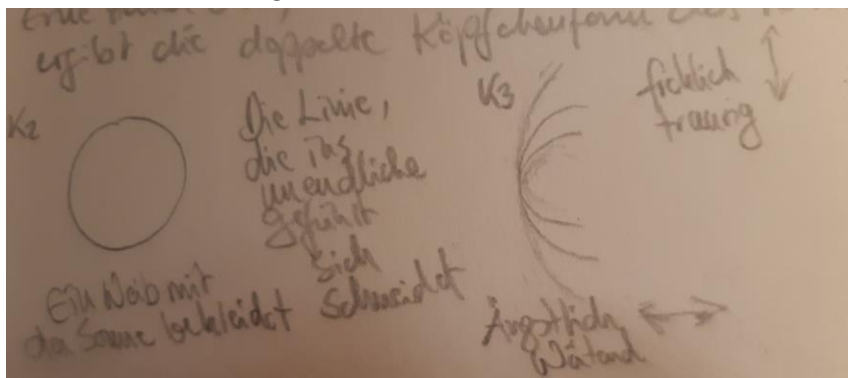 ergibt die doppelte Köpfchenform des
K2
Die Linie,
die ins
unendliche
geführt
sich
schneidet
Ein Weib mit
der Sonne bekleidet
K3
traurig
Ängstlich
Wütend